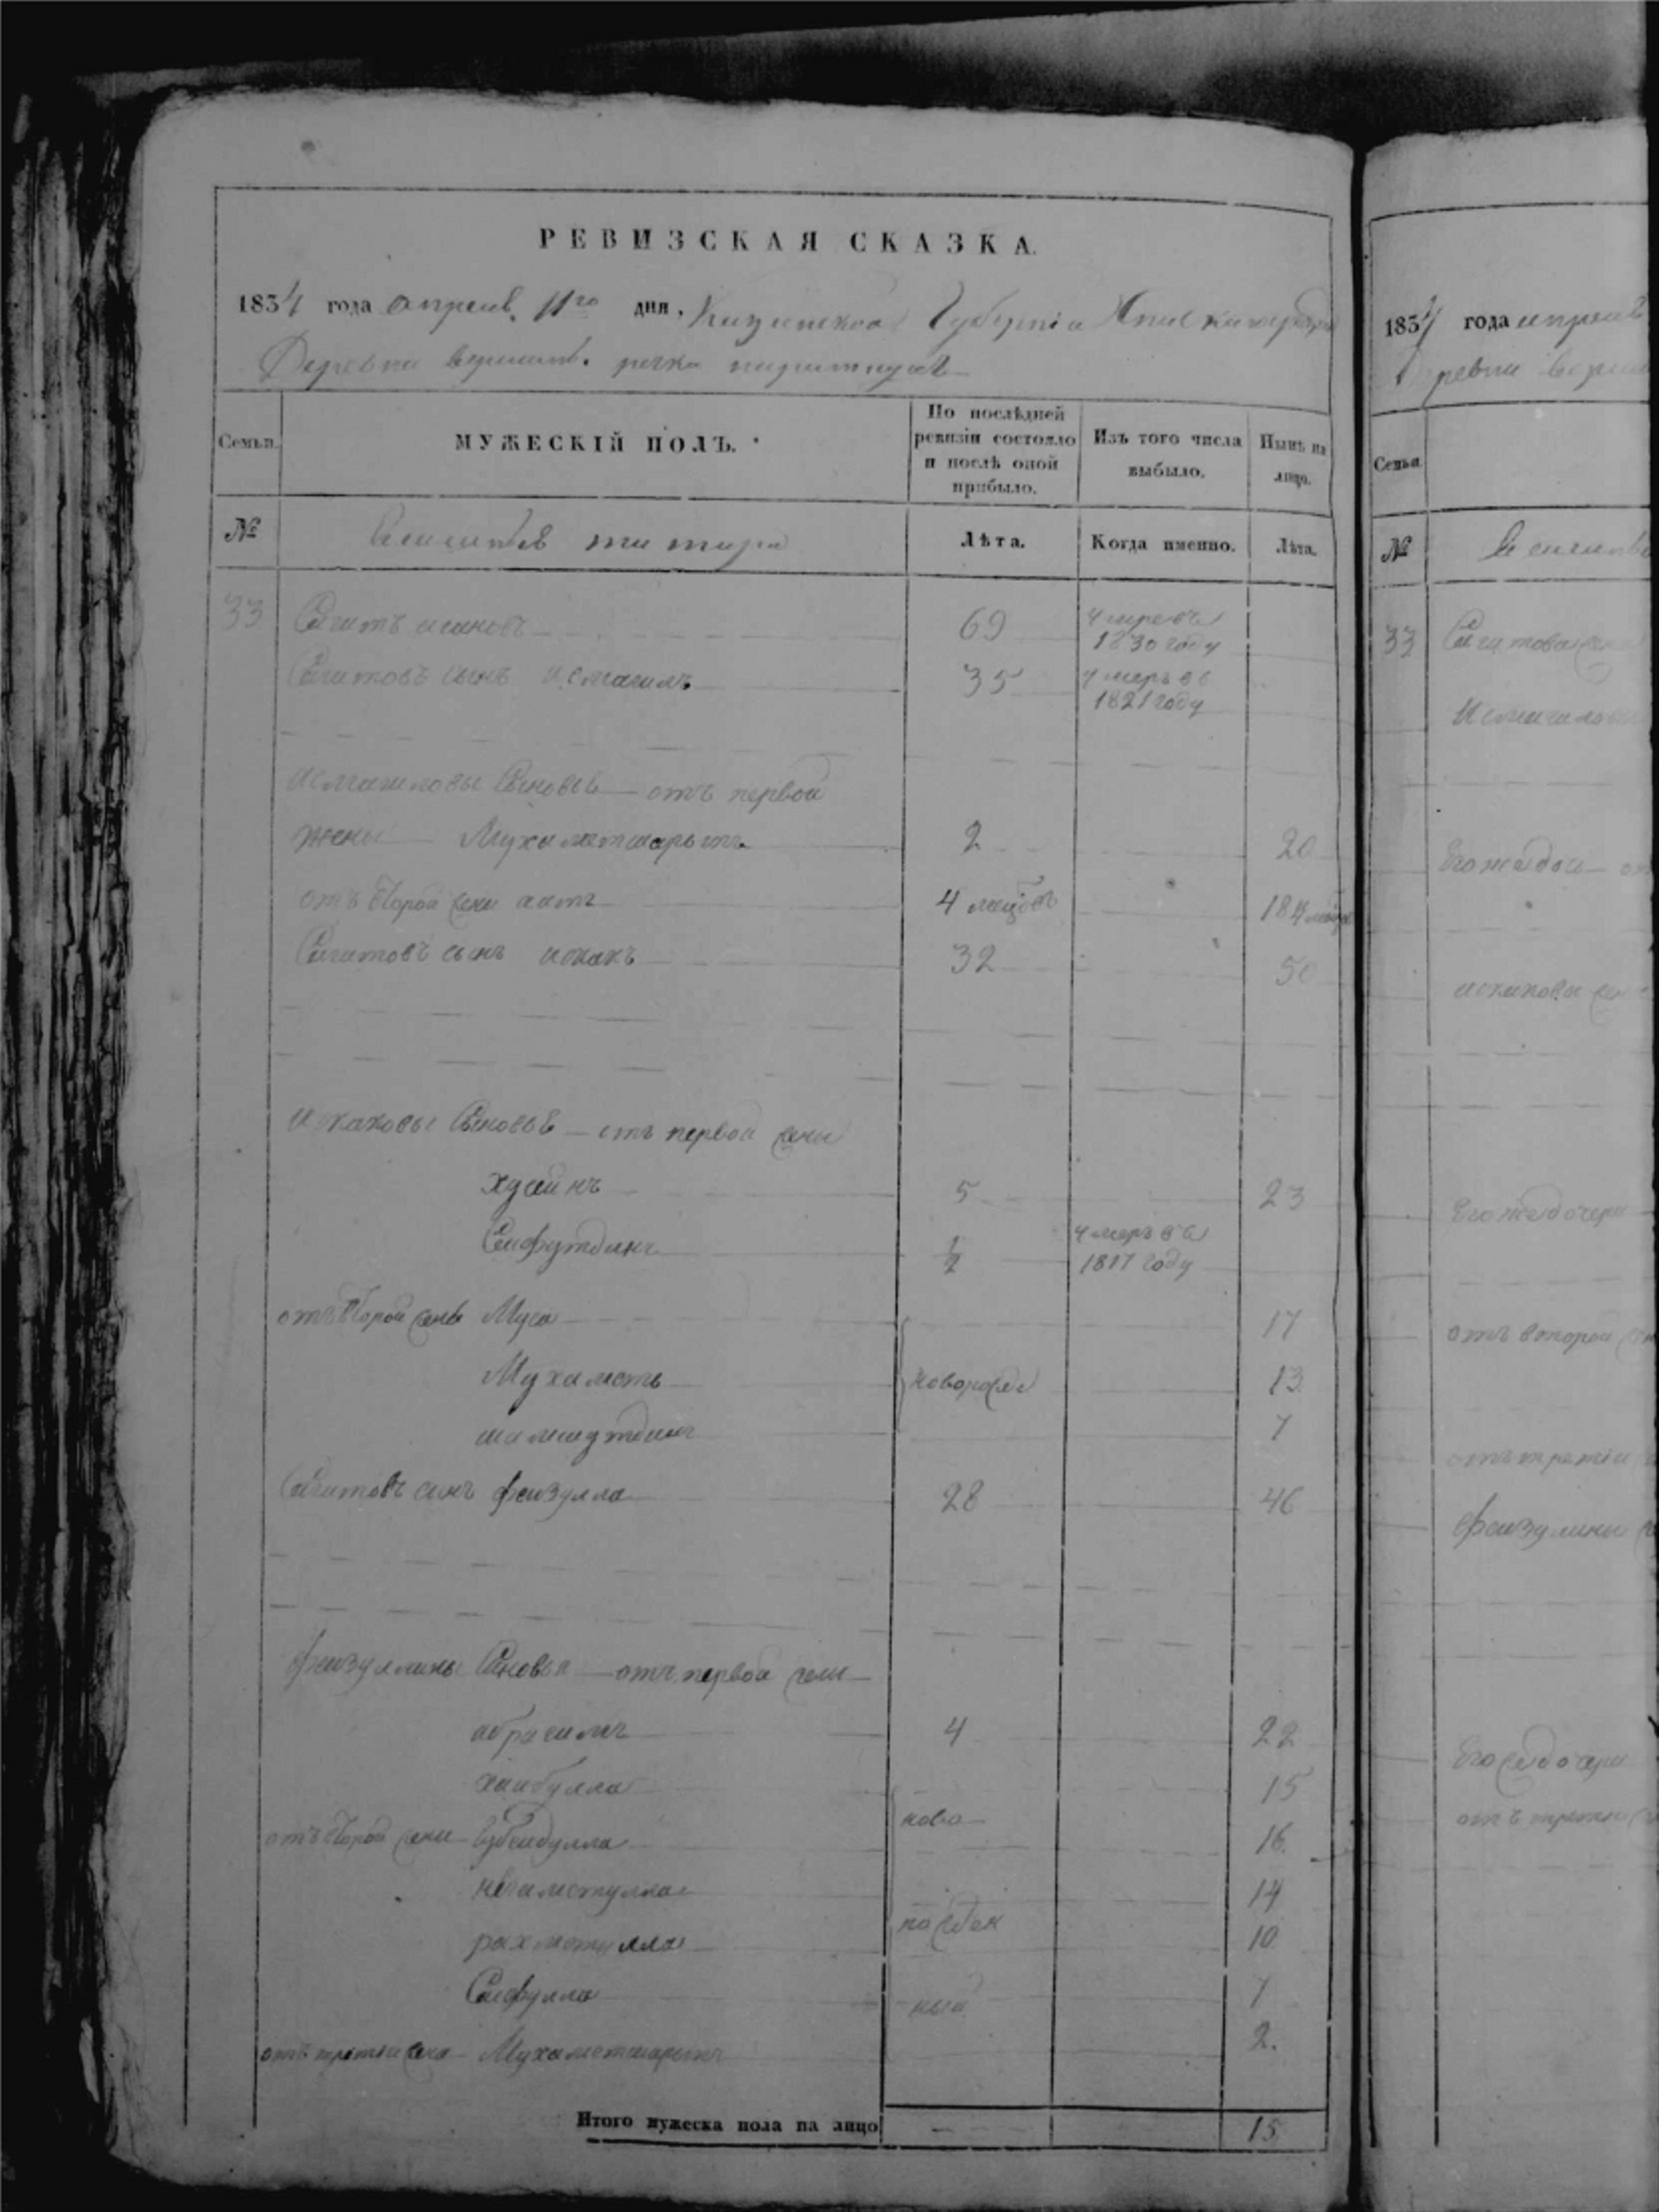 РЕВИЗСКАЯ СКАЗКА.
1834 года апреля 11го дня, Казанской Губернии
Деревни вершинъ речки
Семьи.
МУЖЕСКІЙ ПОЛЪ.
По послѣдней ревизіи состояло и послѣ оной прибыло.
Изъ того числа выбыло.
Нынѣ на лицо.
№
Лѣта.
Когда именно.
Лѣта.
33 Сагитъ исановъ 69 умре въ 1830 году
Сагитовъ сынъ исмагилъ 35 умеръ въ 1821 году
исмагиловы сыновья отъ первой
жены Мухаметшарыпъ 2 20
отъ второй жены 4 18
Сагитовъ сынъ исхакъ 32 50
исхаковы сыновья отъ первой жены
хусаинъ 5 23
Сейфутдинъ 1/2 умеръ въ 1817 году
отъ второй жены Муса 17
Мухаметь новорожде 13
шамшутдинъ 7
Сагитовъ сынъ фейзулла 28 46
фейзуллины сыновья отъ первой жены
абрагимъ 4 22
хайбулла 15
отъ второй жены губейдулла ново 16
негаметулла 14
рахметулла рожден 10
Сейфулла ный 7
отъ третьи жена Мухаметшарыпъ 2.
Итого мужеска пола на лицо 15
1834 года апреля
деревни верши
Семьи
№
33 Сагитова жена
Исмагилова
Его же дочь от
исхакова жена
Его же дочери
отъ второй жен
отъ третіи
фейзуллины
Его же дочери
отъ третьи